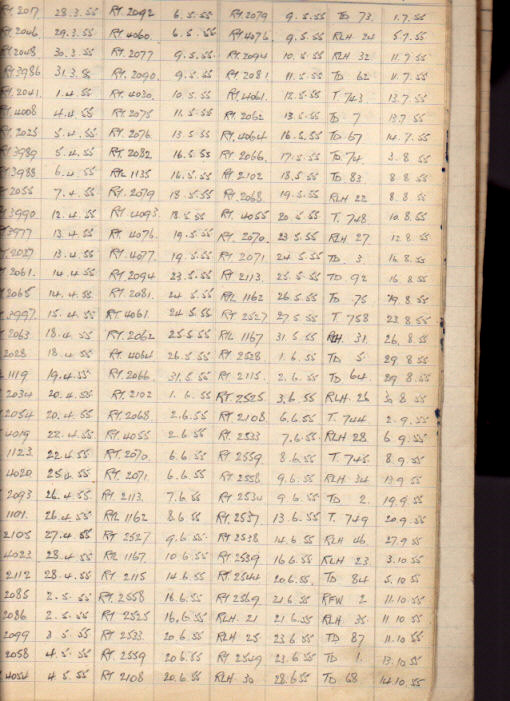 RT. 2017 28.3.55 RT. 2092 6.5.55 RT. 2079 9.5.55 TD 73. 1.7.55
2046 29.3.55 RT. 4060. 6.5.55 RT 4076 9.5.55 RLH 24 5.7.55
2048 30.3.55 RT. 2077 9.5.55 RT. 2094 10.5.55 RLH 32 11.7.55
3986 31.3.55 RT. 2090. 9.5.55 RT 2081. 11.5.55 TD 62 11.7.55
2041. 1.4.55 RT. 4030. 10.5.55 RT. 4061. 12.5.55 T. 743 13.7.55
4008 4.4.55 RT. 2075 11.5.55 RT 2062 13.5.55 TD 7 13.7.55
2025 5.4.55 RT. 2076 13.5.55 RT. 4064 16.5.55 TD 67 14.7.55
3989 5.4.55 RT. 2082 16.5.55 RT 2066. 17.5.55 TD. 74. 3.8.55
3988 6.4.55 RTL 1135 16.5.55 RT 2102 18.5.55 TD. 83 8.8.55
2055 7.4.55 RT. 2079 18.5.55 RT 2068. 19.5.55 RLH 22 8.8.55
3990 12.4.55 RT 4093. 18.5.55 RT 4055 20.5.55 T. 748 10.8.55
3977 13.4.55 RT. 4076. 19.5.55 RT. 2070. 23.5.55 RLH 27 12.8.55
2027 13.4.55 RT. 4077. 19.5.55 RT. 2071 24.5.55 TD. 3. 16.8.55
2061. 14.4.55 RT. 2094 23.5.55 RT 2113. 25.5.55 TD 92 16.8.55
2065 14.4.55 RT. 2081. 24.5.55 RTL 1162 26.5.55 TD 75 19.8.55
3997 15.4.55 RT 4061. 24.5.55 RT 2527 27.5.55 T 758 23.8.55
2063 18.4.55 RT. 2062 25.5.55 RTL 1167 31.5.55 RLH. 31. 26.8.55
2028 18.4.55 RT. 4064 26.5.55 RT 2528 1.6.55 TD 5. 29.8.55
1119 19.4.55 RT. 2066. 31.5.55 RT. 2115. 2.6.55 TD 64. 29.8.55
2034 20.4.55 RT. 2102 1.6.55 RT 2525 3.6.55 RLH. 26 30.8.55
2054 20.4.55 RT. 2068 2.6.55 RT 2108. 6.6.55 T. 744 2.9.55
4019 22.4.55 RT. 4055 2.6.55 RT. 2533 7.6.55 RLH 28. 6.9.55
1123. 22.4.55 RT. 2070. 6.6.55 RT 2559 8.6.55 T. 745 8.9.55
4020 25.4.55 RT. 2071. 6.6.55 RT 2558 9.6.55 RLH 34 13.9.55
2093 26.4.55 RT. 2113. 7.6.55 RT 2534 9.6.55 TD 2. 19.9.55
1101. 26.4.55 RTL 1162 8.6.55 RT. 2537. 13.6.55 T. 749 20.9.55
2105 27.4.55 RT 2527 9.6.55 RT 2538 14.6.55 RLH 46 27.9.55
4023 28.4.55 RTL 1167. 10.6.55 RT 2539 16.6.55 RLH 23. 3.10.55
2112 28.4.55 RT 2115 14.6.55 RT 2544 20.6.55. TD 84 5.10.55
2085 2.5.55 RT. 2558 16.6.55 RT 2569 21.6.55 RFW 2 11.10.55
2086 2.5.55 RT 2525 16.6.55 RLH. 21 21.6.55 RLH 35. 11.10.55
2099 3.5.55 RT 2533. 20.6.55 RLH 25 23.6.55 TD 87 11.10.55
2058 4.5.55 RT. 2559 20.6.55 RT 2549 23.6.55 TD 1. 13.10.55
4054 4.5.55 RT 2108 20.6.55 RLH 30 28.6.55 TD 68. 14.10.55